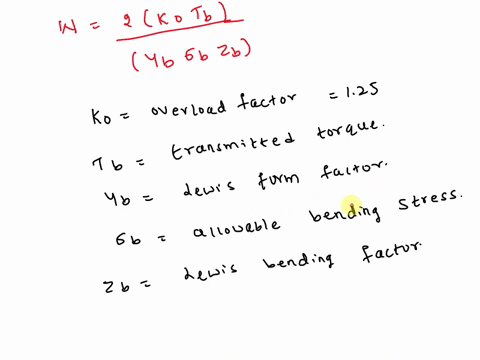 W = 2 (Ko Tb)
(Yb σb Zb)
Ko = overload factor = 1.25
Tb = transmitted torque.
Yb = Lewis form factor.
σb = allowable bending stress.
Zb = Lewis bending factor.